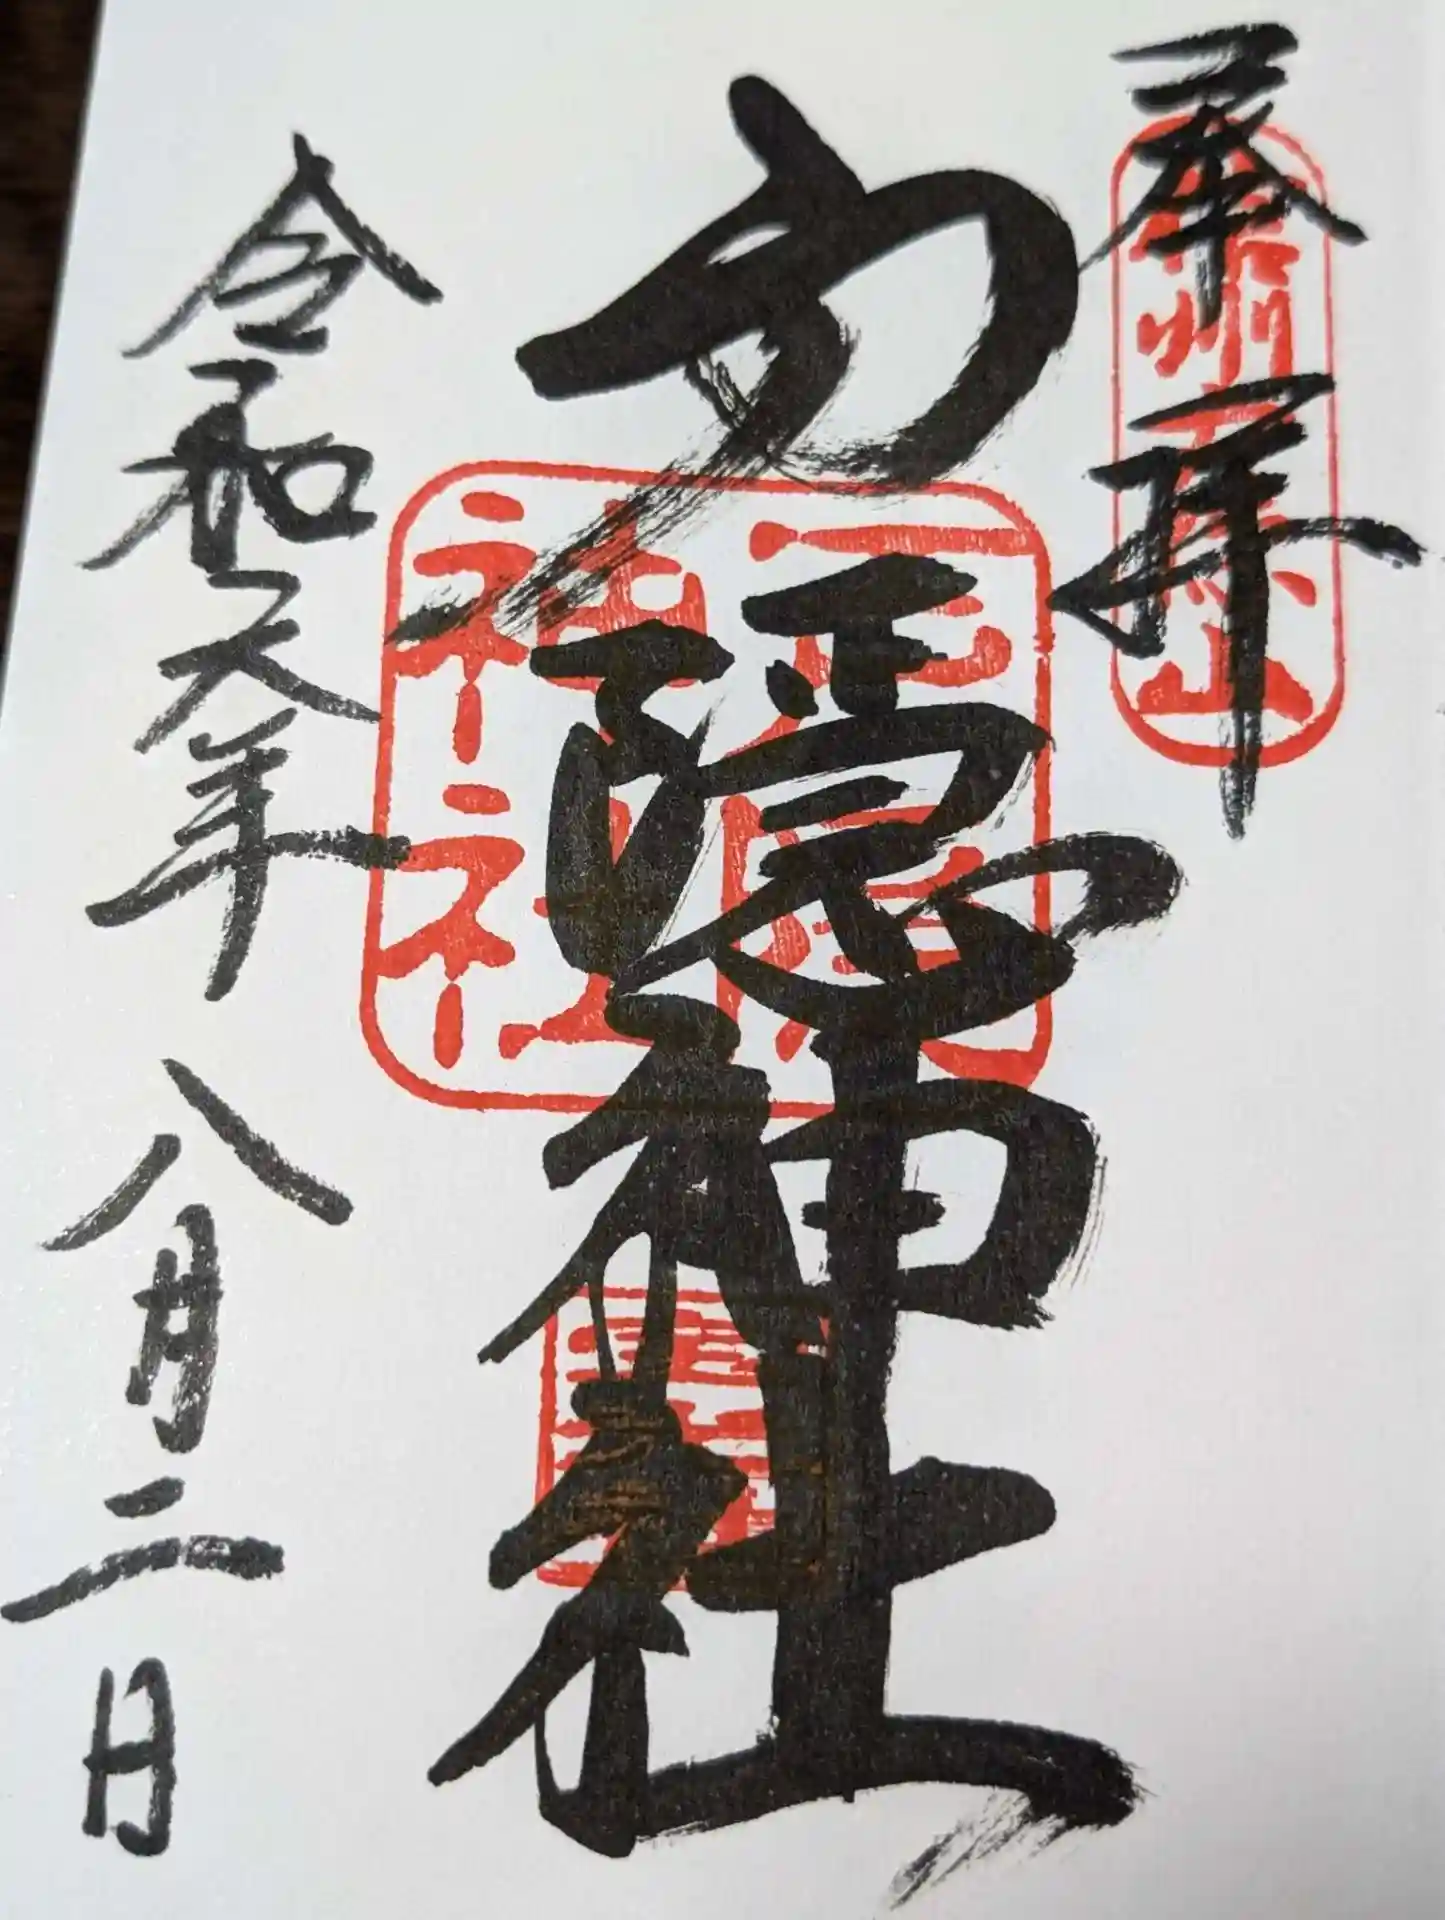 奉拝
信州戸隠山
戸隠神社
戸隠神社
令和六年 八月二日